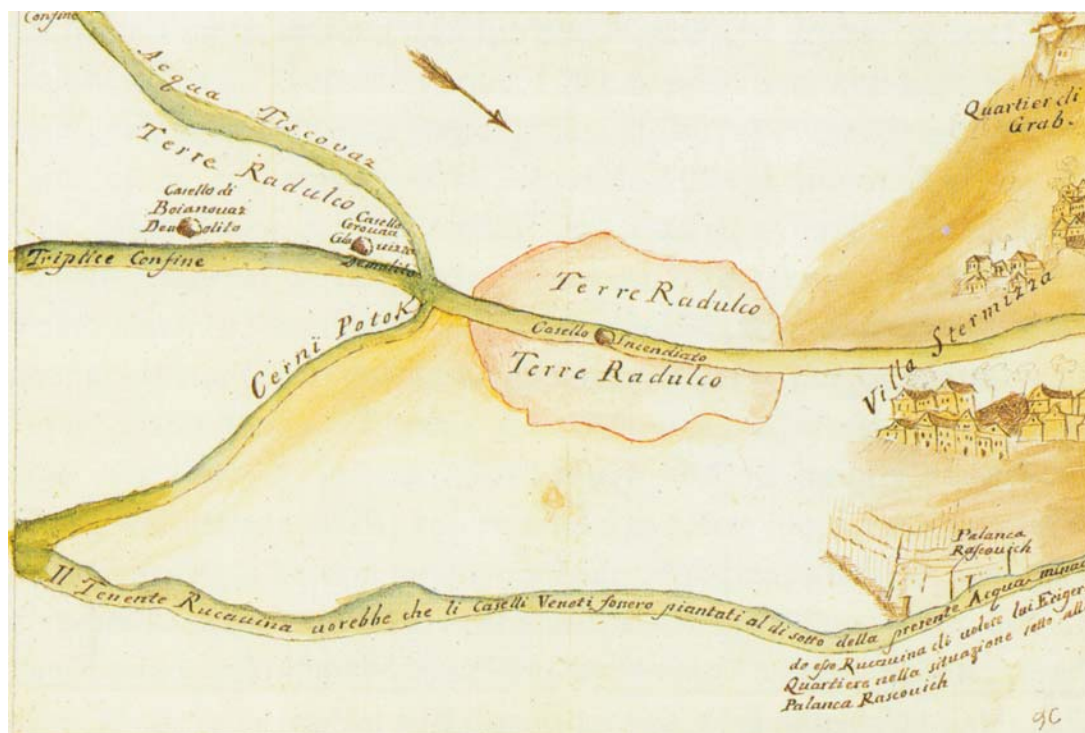 Confine
Acqua Tiscovaz
Terre Radulco
Casello di
Boianovaz
Demolito
Casello
Demolito
Triplice Confine
Cerni Potok
Terre Radulco
Casello Incendiato
Terre Radulco
Quartier di
Grab.
Villa Stermizza
Palanca
Rascovich
Il Tenente Rucavina vorebbe che li Caselli Veneti fonero piantati al di sotto della presente Acqua minac
do esso Rucavina di volere lui Eriger
Quartiere nella situazione sotto all
Palanca Rascovich